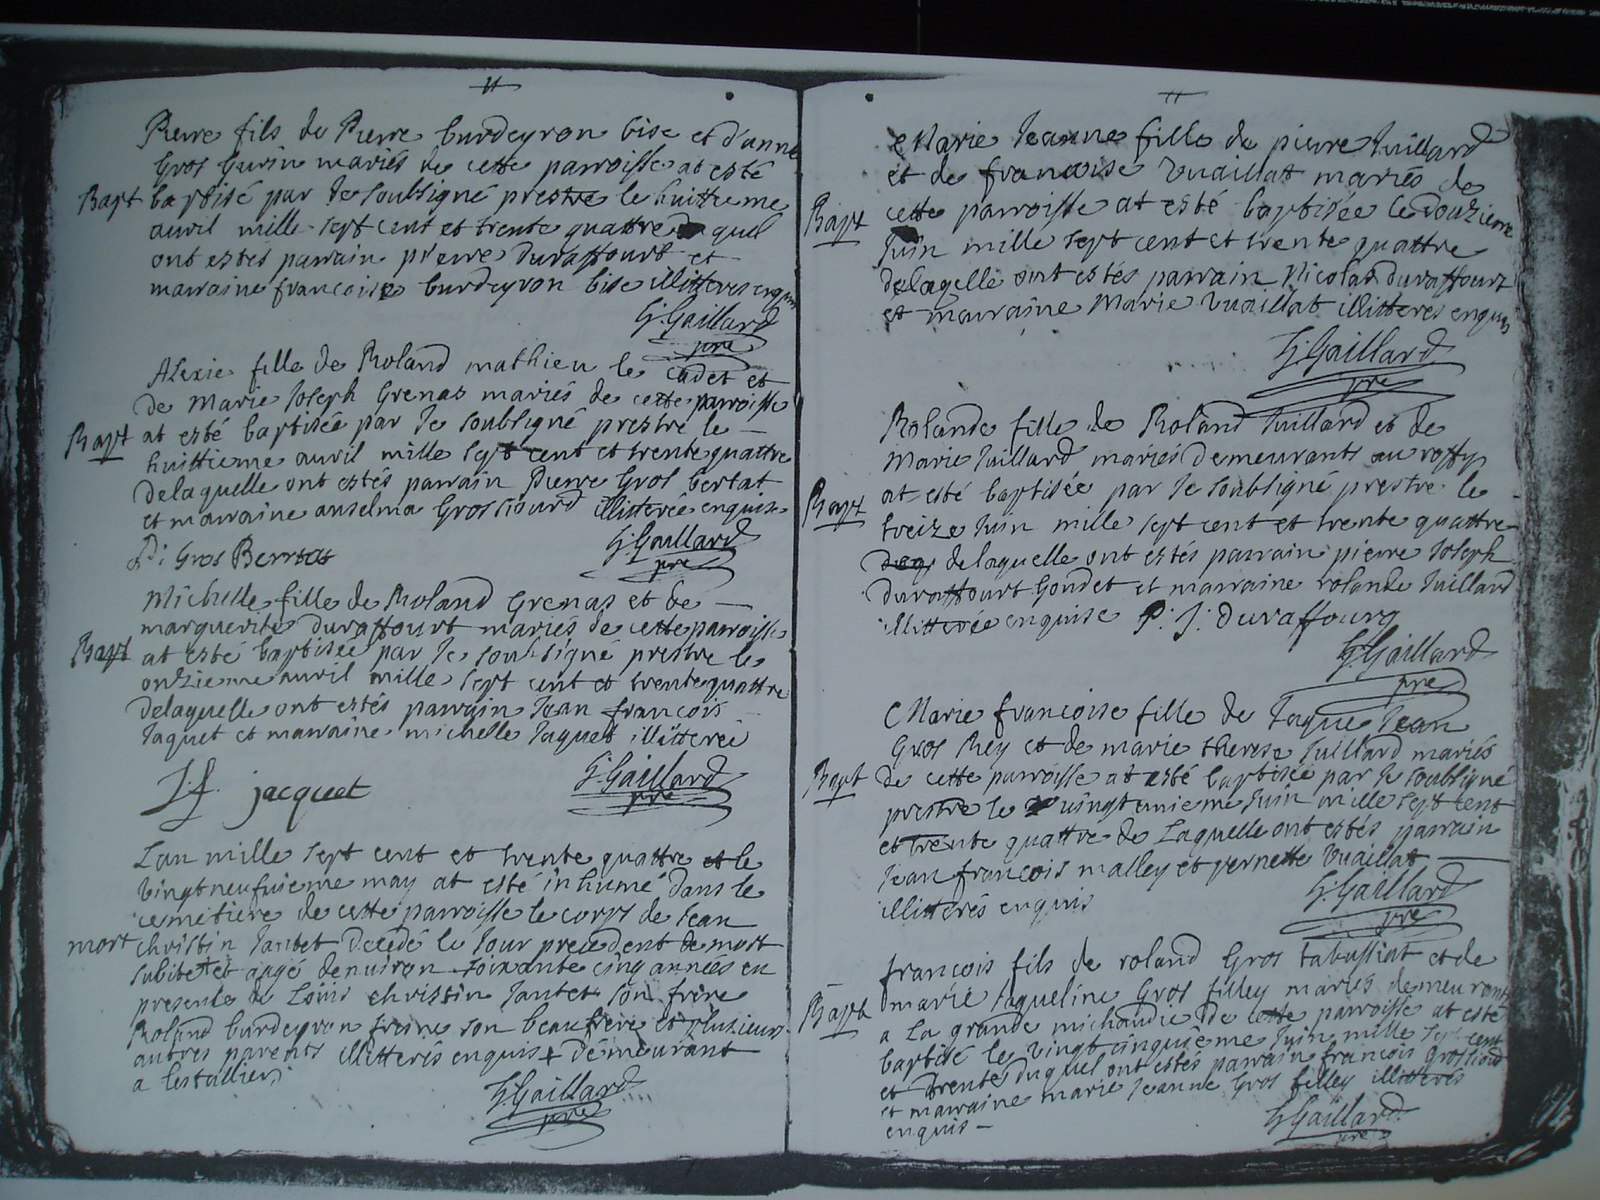 Pierre fils de Pierre burdeyron bise et d'anne
Gros Gurin mariés de cette parroisse at esté
Bapt baptisé par Je soubsigné prestre le huittieme
auril mille sept cent et trente quattre du quel
ont estés parrain pierre Duraffourt et
marraine francoise burdeyron bise illitteres enquis
G: Gaillard
pre
Alexie fille de Roland mathieu le cadet et
de Marie Joseph Grenas mariés de cette parroisse
Bapt at esté baptisée par Je soubsigné prestre le
huittieme auril mille sept cent et trente quattre
delaquelle ont estés parrain Pierre Gros bertat
et marraine anselma Grossiourd illitterée enquise
P: Gros Berrtat
G: Gaillard
pre
Michelle fille de Roland Grenas et de
marguerite duraffourt mariés de cette parroisse
Bapt at esté baptisée par Je soubsigné prestre le
onzieme auril mille sept cent et trente quattre
delaquelle ont estés parrain Jean francois
Jaquet et marraine michelle Jaquet illitterei
J. f. jacquet
G: Gaillard
pre
Lan mille sept cent et trente quattre et le
vingt neufuieme may at esté inhumé dans le
cemetiere de cette parroisse le corps de Jean
mort christin Jantet decedé le Jour precedent de mort
subite et aagé denuiron soixante cinq années en
presence de Louis christin Jantet son frère
Roland burdeyron frere son beaufrère et plusieurs
autres parents illitterés enquis + demeurant
a lestallier
G: Gaillard
pre
Marie Jeanne fille de pierre Juillard
et de francoise Vuaillat mariés de
Bapt cette parroisse at esté baptisée le douzieme
Juin mille sept cent et trente quattre
delaqelle ont estés parrain Nicolas duraffourt
et marraine Marie Vuaillat illitteres enquis
G: Gaillard
pre
Rolande fille de Roland Juillard et de
Marie Juillard mariés demeurants au
Bapt at esté baptisée par Je soubsigné prestre le
treize Juin mille sept cent et trente quattre
delaquelle ont estés parrain pierre Joseph
duraffourt Goudet et marraine rolande Juillard
illitterée enquise P: J: Duraffourg
G: Gaillard
pre
Marie francoise fille de Jaque Jean
Gros Rey et de marie therese Juillard mariés
Bapt de cette parroisse at esté baptisée par Je soubsigné
prestre le vingt unieme Juin mille sept cent
et trente quattre de Laquelle ont estés parrain
Jean francois malley et pernette Vuaillat
illitterés enquis
G: Gaillard
pre
francois fils de roland Gros tabussiat et de
marie Jaqueline Gros filley mariés demeurants
Bapt a La grande michaudie de cette parroisse at esté
baptisé le vingt cinquieme Juin mille sept cent
et trente duquel ont estés parrain francois Grossiord
et marraine marie Jeanne Gros filley illitterés
enquis
G: Gaillard
pre